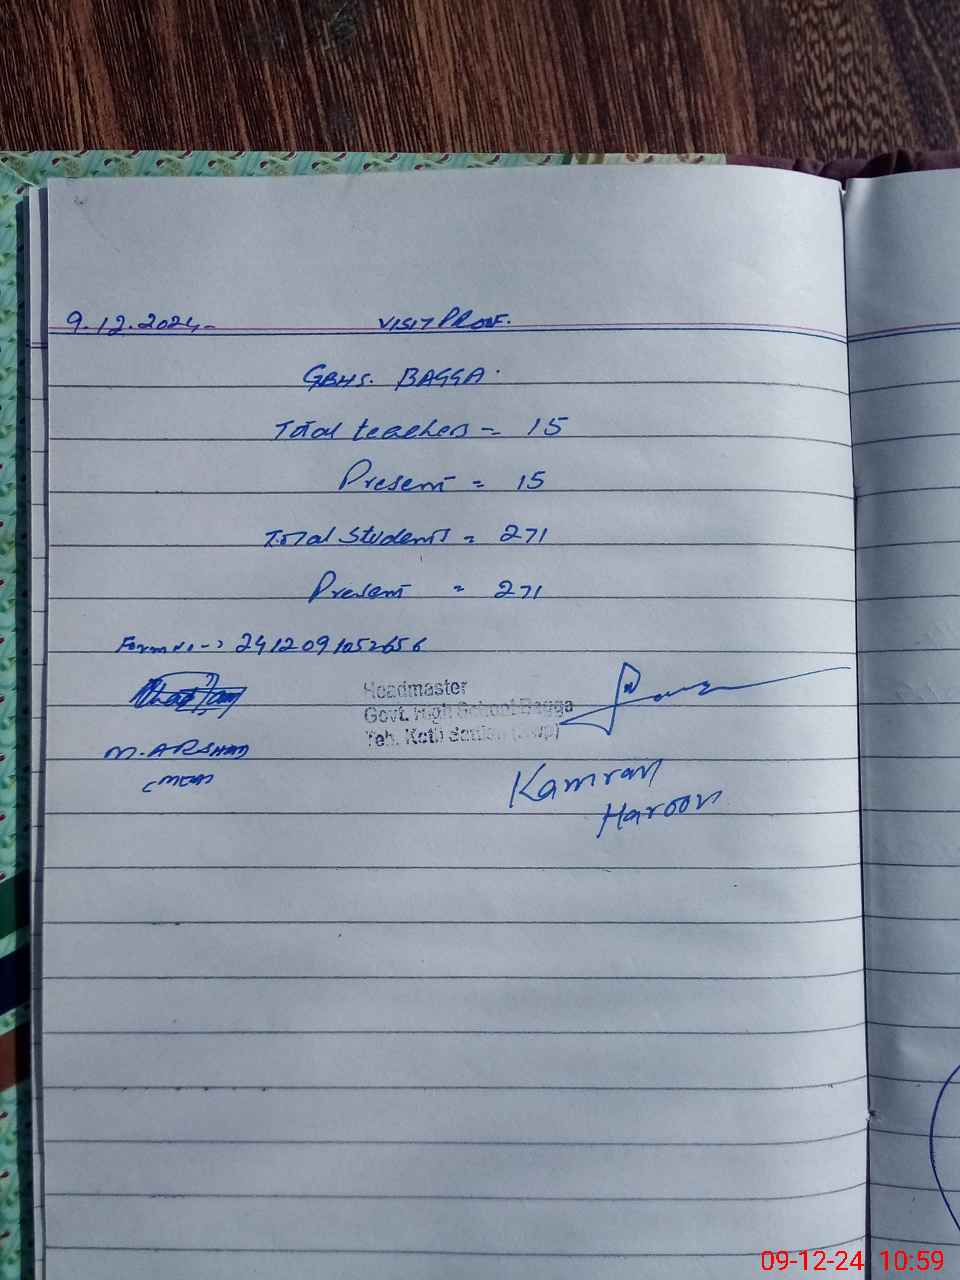 9.12.2024 VISIT PROOF.
GBHS. BAGGA.
Total teachers = 15
Present = 15
Total Students = 271
Present = 271
Form No -> 2412091052656
Headmaster
Govt. High School Bagga
Teh. Kotli Sattian (Rwp)
M. ARSHAD
Kamran
Haroon
09-12-24 10:59